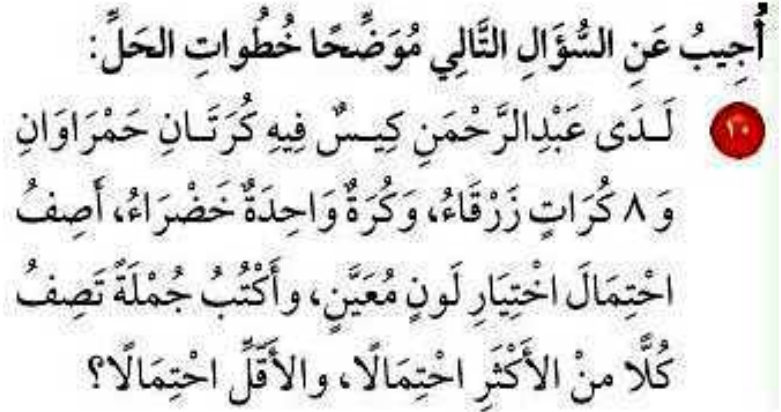 أُجِيبُ عَنِ السُّؤَالِ التَّالِي مُوَضِّحًا خُطُواتِ الحَلِّ:
١٠ لَـدَى عَبْدِالرَّحْمَنِ كِيـسٌ فِيهِ كُرَتَـانِ حَمْرَاوَانِ
وَ ٨ كُرَاتٍ زَرْقَاءُ، وَكُرَةٌ وَاحِدَةٌ خَضْرَاءُ، أَصِفُ
احْتِمَالَ اخْتِيَارِ لَونٍ مُعَيَّنٍ، وأَكْتُبُ جُمْلَةً تَصِفُ
كُلًّا منْ الأَكْثَرِ احْتِمَالًا، والأَقَلِّ احْتِمَالًا؟